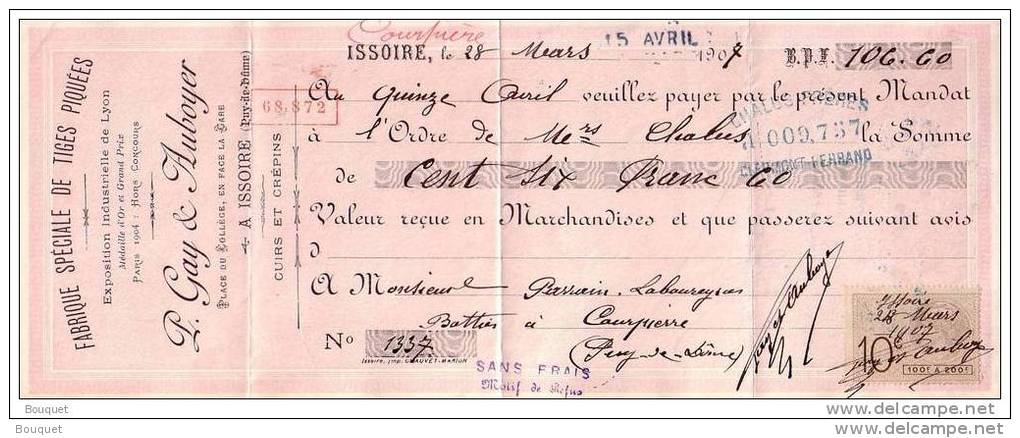 FABRIQUE SPÉCIALE DE TIGES PIQUÉES
Exposition Industrielle de Lyon
Médaille d'Or et Grand Prix
PARIS 1904 : HORS CONCOURS
P. Gay & Auboyer
PLACE DU COLLÈGE, EN FACE LA GARE
A ISSOIRE (Puy-de-Dôme)
CUIRS ET CRÉPINS
Courpière
15 AVRIL
ISSOIRE, le 28 Mars 1907 B.P.F. 106.60
68.872
Au Quinze Avril veuillez payer par le présent Mandat
CHALUS FRÈRES
à l'Ordre de Mers Chalus la Somme
009,737
CLERMONT-FERRAND
de Cent Six Franc 60
Valeur reçue en Marchandises et que passerez suivant avis
d
A Monsieur Parrain
Bottier à Courpierre
(Puy-de-Dôme)
No 1337
Issoire, Imp. CHAUVET-MARION
SANS FRAIS
Motif de Refus
Gay et Auboyer
Issoire
28 Mars
1907
Gay et Auboyer
10
100F A 200F
Bouquet
Bouquet
http://www.delcampe.net